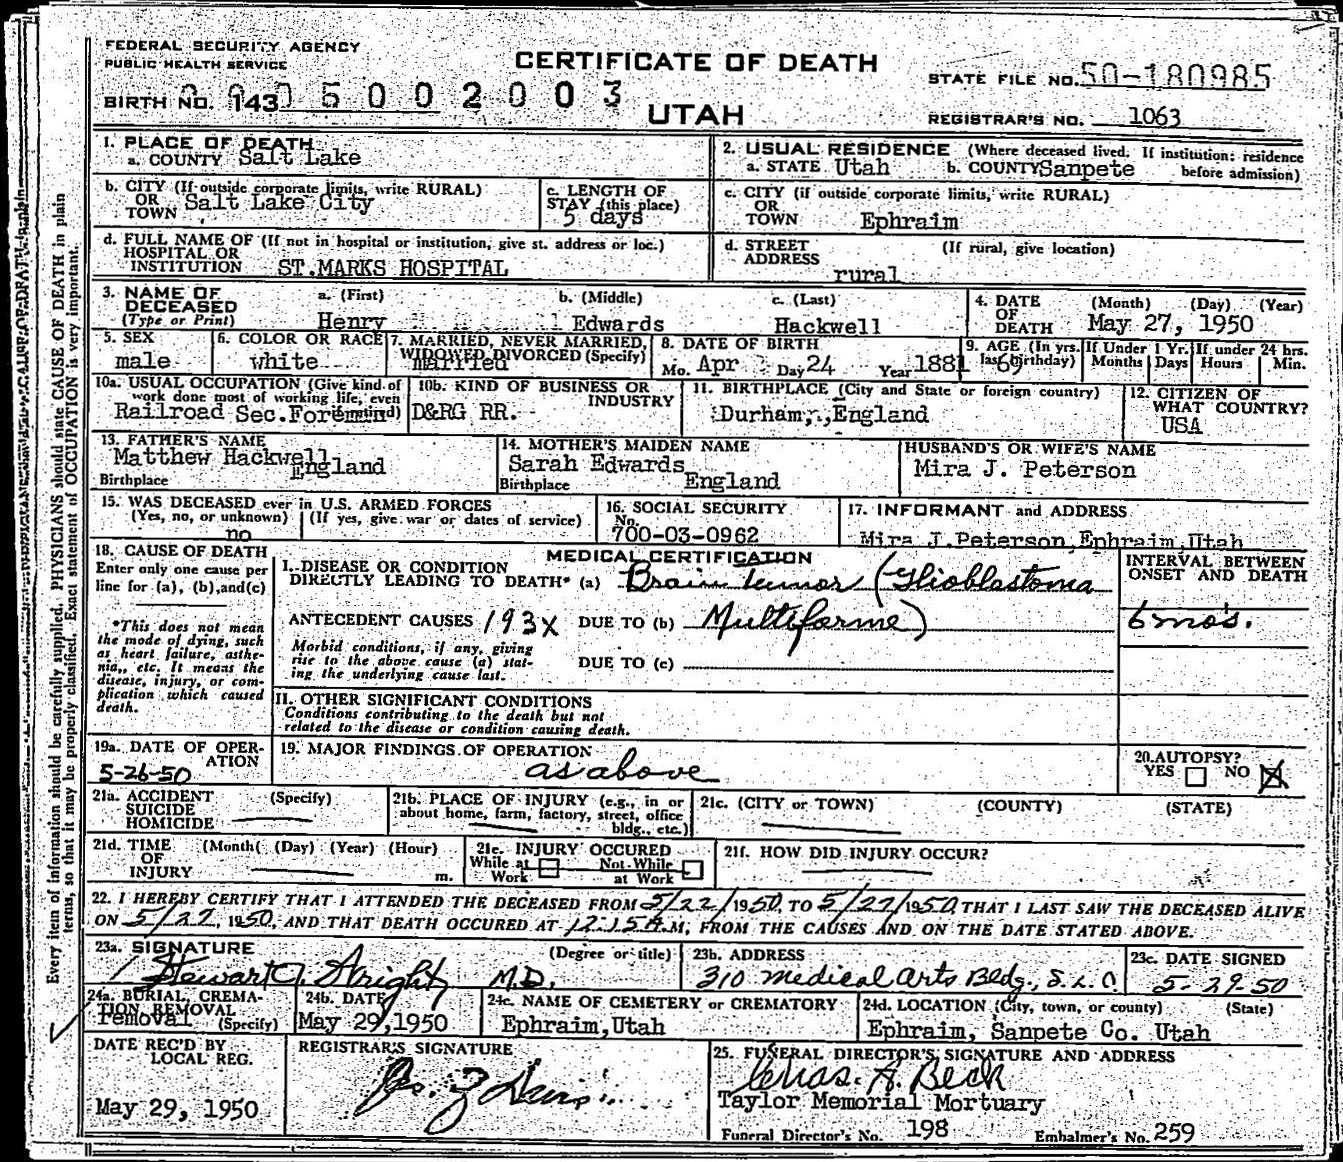 FEDERAL SECURITY AGENCY
PUBLIC HEALTH SERVICE
CERTIFICATE OF DEATH
STATE FILE NO. 50-180985
BIRTH NO. 143 5002003
UTAH
REGISTRAR'S NO. 1063
1. PLACE OF DEATH
a. COUNTY Salt Lake
2. USUAL RESIDENCE (Where deceased lived. If institution: residence before admission)
a. STATE Utah b. COUNTY Sanpete
b. CITY (If outside corporate limits, write RURAL)
OR TOWN Salt Lake City
c. LENGTH OF STAY (this place)
5 days
c. CITY (if outside corporate limits, write RURAL)
OR TOWN Ephraim
d. FULL NAME OF (If not in hospital or institution, give st. address or loc.)
HOSPITAL OR INSTITUTION ST.MARKS HOSPITAL
d. STREET ADDRESS (If rural, give location)
rural
3. NAME OF DECEASED (Type or Print)
a. (First) b. (Middle) c. (Last)
Henry Edwards Hackwell
4. DATE OF DEATH (Month) (Day) (Year)
May 27, 1950
5. SEX
male
6. COLOR OR RACE
white
7. MARRIED, NEVER MARRIED, WIDOWED, DIVORCED (Specify)
married
8. DATE OF BIRTH
Mo. Apr Day 24 Year 1881
9. AGE (In yrs. last birthday) 69
If Under 1 Yr. Months Days
If under 24 hrs. Hours Min.
10a. USUAL OCCUPATION (Give kind of work done most of working life, even if retired)
Railroad Sec.Foreman
10b. KIND OF BUSINESS OR INDUSTRY
D&RG RR.
11. BIRTHPLACE (City and State or foreign country)
Durham, England
12. CITIZEN OF WHAT COUNTRY?
USA
13. FATHER'S NAME
Matthew Hackwell
Birthplace England
14. MOTHER'S MAIDEN NAME
Sarah Edwards
Birthplace England
HUSBAND'S OR WIFE'S NAME
Mira J. Peterson
15. WAS DECEASED ever in U.S. ARMED FORCES
(Yes, no, or unknown) (If yes, give war or dates of service)
no
16. SOCIAL SECURITY No.
700-03-0962
17. INFORMANT and ADDRESS
Mira J.Peterson,Ephraim,Utah
18. CAUSE OF DEATH
Enter only one cause per line for (a), (b), and (c)
*This does not mean the mode of dying, such as heart failure, asthenia, etc. It means the disease, injury, or complication which caused death.
MEDICAL CERTIFICATION
I. DISEASE OR CONDITION
DIRECTLY LEADING TO DEATH* (a) Brain tumor (Glioblastoma
ANTECEDENT CAUSES 193X DUE TO (b) Multiforme)
Morbid conditions, if any, giving rise to the above cause (a) stating the underlying cause last.
DUE TO (c)
INTERVAL BETWEEN ONSET AND DEATH
6 mo's.
II. OTHER SIGNIFICANT CONDITIONS
Conditions contributing to the death but not related to the disease or condition causing death.
19a. DATE OF OPERATION
5-26-50
19. MAJOR FINDINGS OF OPERATION
as above
20. AUTOPSY?
YES NO X
21a. ACCIDENT SUICIDE HOMICIDE (Specify)
21b. PLACE OF INJURY (e.g., in or about home, farm, factory, street, office bldg., etc.)
21c. (CITY or TOWN) (COUNTY) (STATE)
21d. TIME OF INJURY (Month( (Day) (Year) (Hour) m.
21e. INJURY OCCURED
While at Work Not While at Work
21f. HOW DID INJURY OCCUR?
22. I HEREBY CERTIFY THAT I ATTENDED THE DECEASED FROM 5/22/1950, TO 5/27/1950, THAT I LAST SAW THE DECEASED ALIVE
ON 5/27, 1950, AND THAT DEATH OCCURED AT 12:15A.M, FROM THE CAUSES AND ON THE DATE STATED ABOVE.
23a. SIGNATURE (Degree or title)
Stewart A. Wright M.D.
23b. ADDRESS
310 Medical Arts Bldg., S.L.C.
23c. DATE SIGNED
5-29-50
24a. BURIAL, CREMATION, REMOVAL (Specify)
removal
24b. DATE
May 29,1950
24c. NAME OF CEMETERY or CREMATORY
Ephraim,Utah
24d. LOCATION (City, town, or county) (State)
Ephraim, Sanpete Co. Utah
DATE REC'D BY LOCAL REG.
May 29, 1950
REGISTRAR'S SIGNATURE
25. FUNERAL DIRECTOR'S SIGNATURE AND ADDRESS
Chas. A. Beck
Taylor Memorial Mortuary
Funeral Director's No. 198 Embalmer's No. 259
Every item of information should be carefully supplied. PHYSICIANS should state CAUSE OF DEATH in plain
terms, so that it may be properly classified. Exact statement of OCCUPATION is very important.